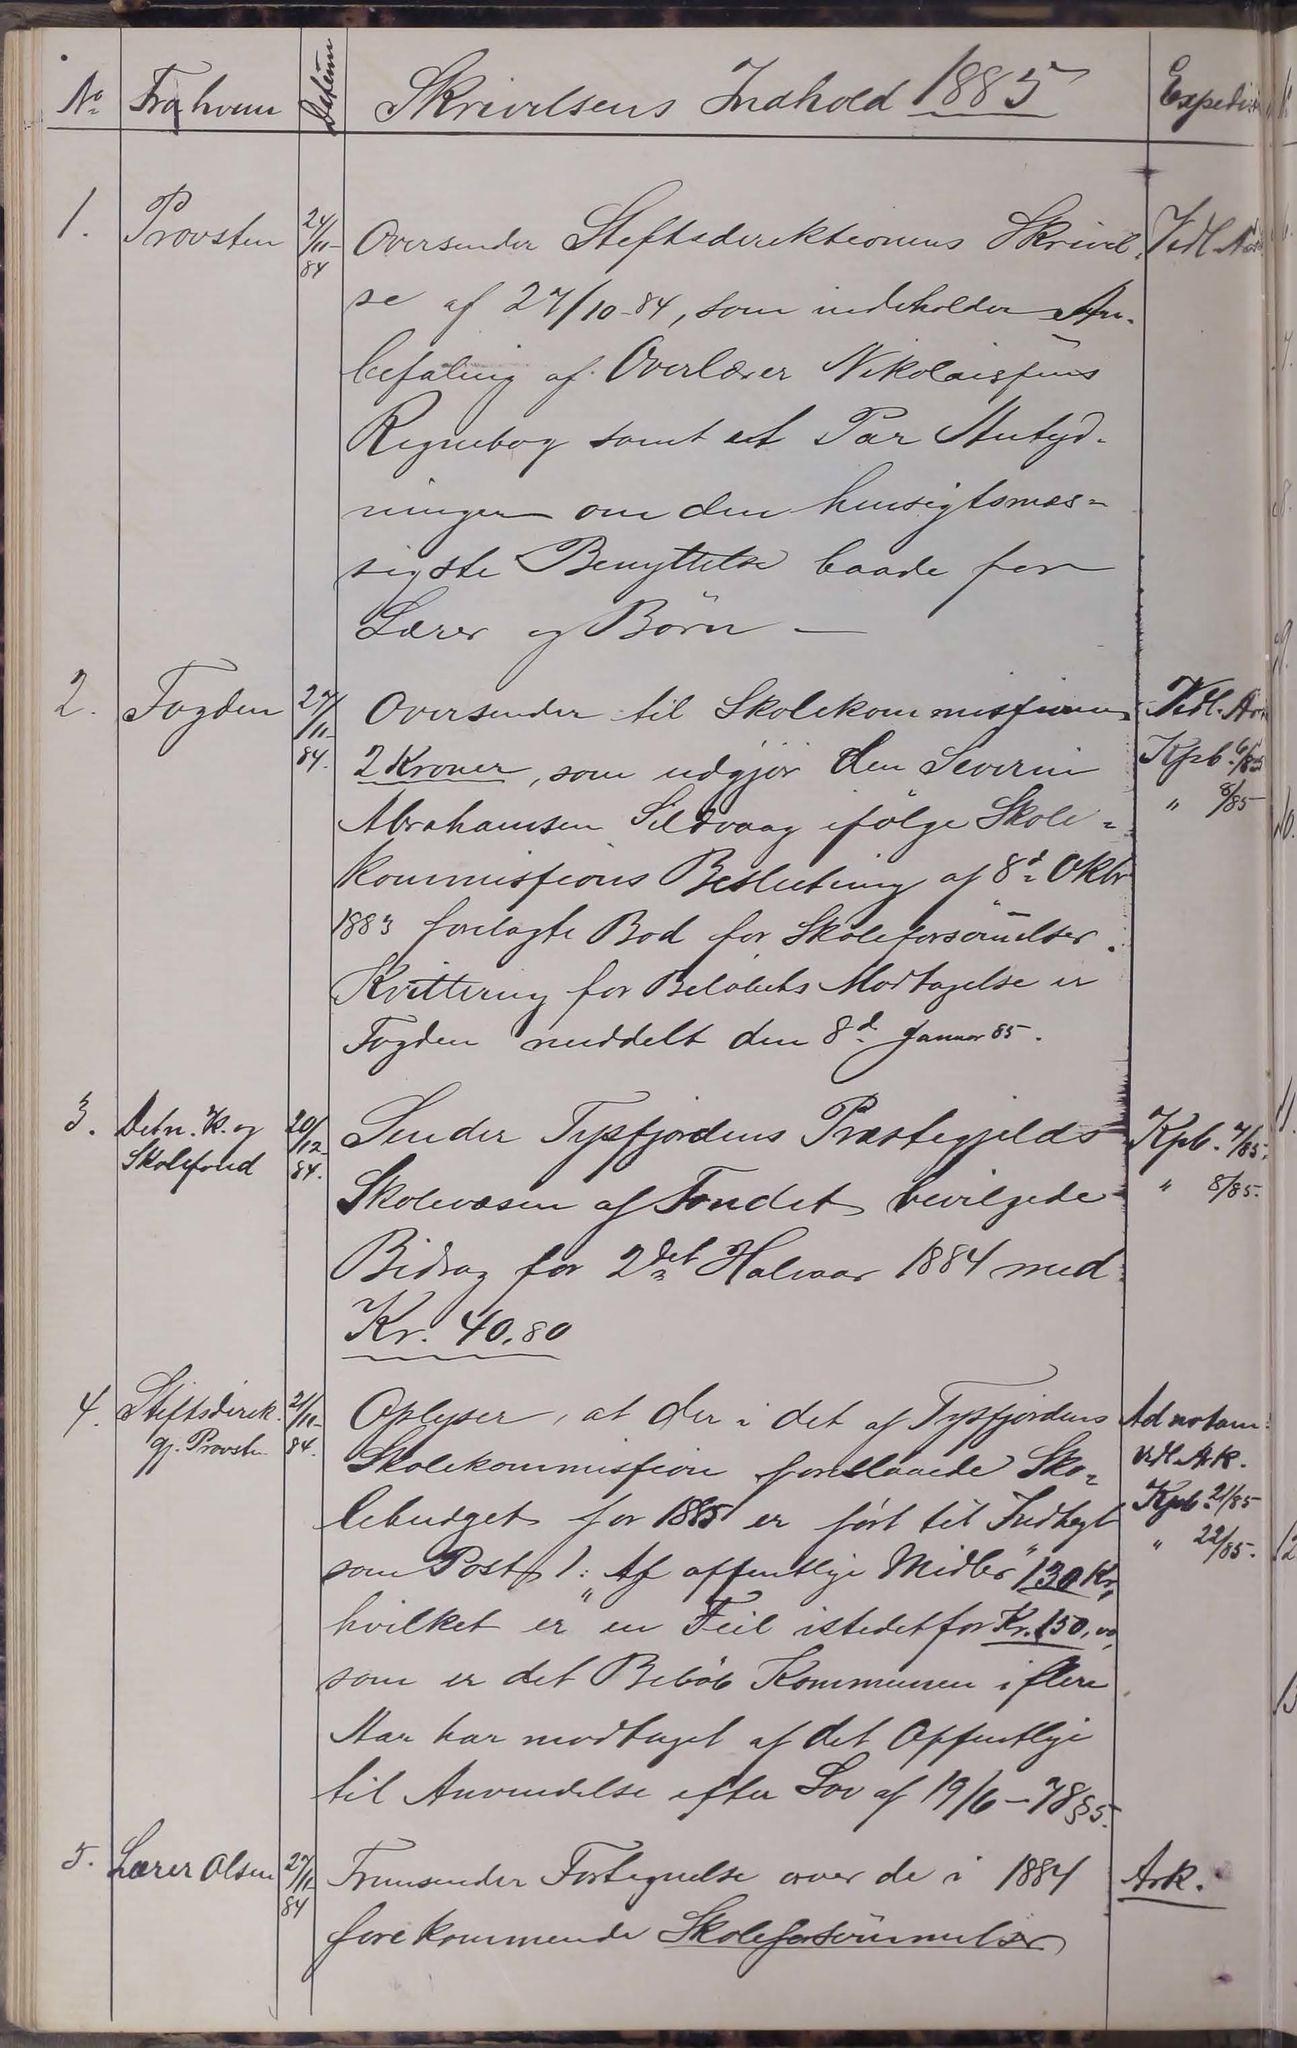 No Fra hvem Datum Skrivelsens Indhold 1885 Expedi
1. Provsten 24/11-84 Oversender Stiftsdirektionens Skrivel-
Vedl. Ark
se af 27/10-84, som indeholder An-
befaling af Overlærer Nikolaisens
Regnebog samt et Par Antyd-
ninger om den hensigtsmæs-
sigste Benyttelse baade for
Lærer og Börn —
2. Fogden 27/11-84. Oversender til Skolekommissionen
Vedl. Ark
2 Kroner, som udgjör den Severin
Kpb. 6/85
Abrahamsen Sildvaag ifölge Skole-
" 8/85
kommissions Beslutning af 8d Oktbr
1883 forelagte Bod for Skoleforsömelser.
Kvittering for Belöbets Modtagelse er
Fogden meddelt den 8d Januar 85.
3. Detn. K. og Skolefond 20/12-84. Sender Tysfjordens Præstegjelds
Kpb. 7/85.
Skolevæsen af Fondet bevilgede
" 8/85.
Bidrag for 2det Halvaar 1884 med
Kr. 40,80
4. Stiftsdirek. gj. Provsten 21/11-84. Oplyser, at der i det af Tysfjordens
Ad notam
Skolekommission foreslaaede Sko-
Vedl. Ark.
lebudget for 1885 er fört til Indtægt
Kpb. 21/85
som Post 1: "Af offentlige Midler" 130 Kr,
" 22/85.
hvilket er en Feil istedetfor Kr. 150,00,
som er det Belöb Kommunen i flere
Aar har modtaget af det Offentlige
til Anvendelse efter Lov af 19/6-78 § 5.
5. Lærer Olsen 27/11-84 Fremsender Fortegnelse over de i 1884
Ark.
forekommende Skoleforsömmelser